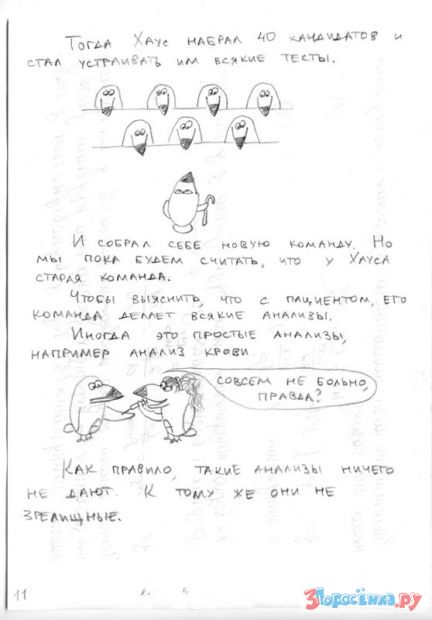 Тогда Хаус набрал 40 кандидатов и
стал устраивать им всякие тесты.
И собрал себе новую команду. Но
мы пока будем считать, что у Хауса
старая команда.
Чтобы выяснить, что с пациентом, его
команда делает всякие анализы.
Иногда это простые анализы,
например анализ крови
совсем не больно,
правда?
Как правило, такие анализы ничего
не дают. К тому же они не
зрелищные.
11
3Поросёнка.ру